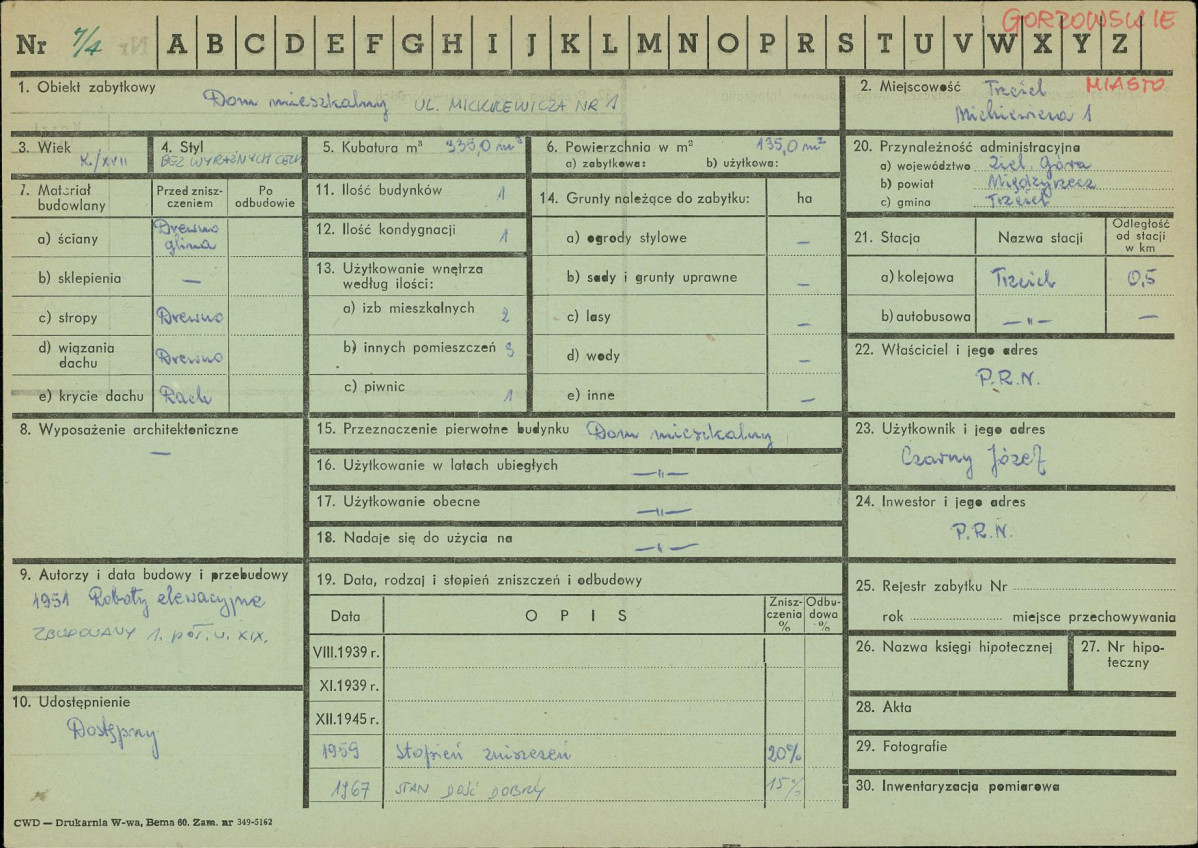 GORZOWSKIE
Nr 7/4 A B C D E F G H I J K L M N O P R S T U V W X Y Z
1. Obiekt zabytkowy
Dom mieszkalny UL. MICKIEWICZA NR 1
2. Miejscowość Trzciel MIASTO
Mickiewicza 1
3. Wiek
K./XVII
4. Styl
BEZ WYRAŹNYCH CECH
5. Kubatura m³ 335,0 m³
6. Powierzchnia w m² 135,0 m²
a) zabytkowa: b) użytkowa:
20. Przynależność administracyjna
a) województwo Ziel. Góra
b) powiat Międzyrzecz
c) gmina Trzciel
7. Materiał budowlany
Przed znisz-
czeniem
Po
odbudowie
a) ściany Drewno
glina
b) sklepienia —
c) stropy Drewno
d) wiązania
dachu Drewno
e) krycie dachu
11. Ilość budynków 1
12. Ilość kondygnacji 1
13. Użytkowanie wnętrza
według ilości:
a) izb mieszkalnych 2
b) innych pomieszczeń 3
c) piwnic 1
14. Grunty należące do zabytku: ha
a) ogrody stylowe —
b) sady i grunty uprawne —
c) lasy —
d) wody —
e) inne —
21. Stacja Nazwa stacji
Odległość
od stacji
w km
a) kolejowa Trzciel 0,5
b) autobusowa —"— —
22. Właściciel i jego adres
P.R.N.
8. Wyposażenie architektoniczne
—
15. Przeznaczenie pierwotne budynku Dom mieszkalny
16. Użytkowanie w latach ubiegłych —"—
17. Użytkowanie obecne —"—
18. Nadaje się do użycia na —"—
23. Użytkownik i jego adres
Czarny Józef
24. Inwestor i jego adres
P.R.N.
9. Autorzy i data budowy i przebudowy
1951 Roboty elewacyjne
ZBUDOWANY 1. poł. w. XIX.
10. Udostępnienie
Dostępny
19. Data, rodzaj i stopień zniszczeń i odbudowy
Data OPIS
Znisz-
czenia
%
Odbu-
dowa
%
VIII.1939 r.
XI.1939 r.
XII.1945 r.
1959 Stopień zniszczeń 20%
1967 STAN DOŚĆ DOBRY 15%
25. Rejestr zabytku Nr
rok miejsce przechowywania
26. Nazwa księgi hipotecznej
27. Nr hipo-
teczny
28. Akta
29. Fotografie
30. Inwentaryzacja pomiarowa
CWD — Drukarnia W-wa, Bema 60. Zam. nr 349-5162